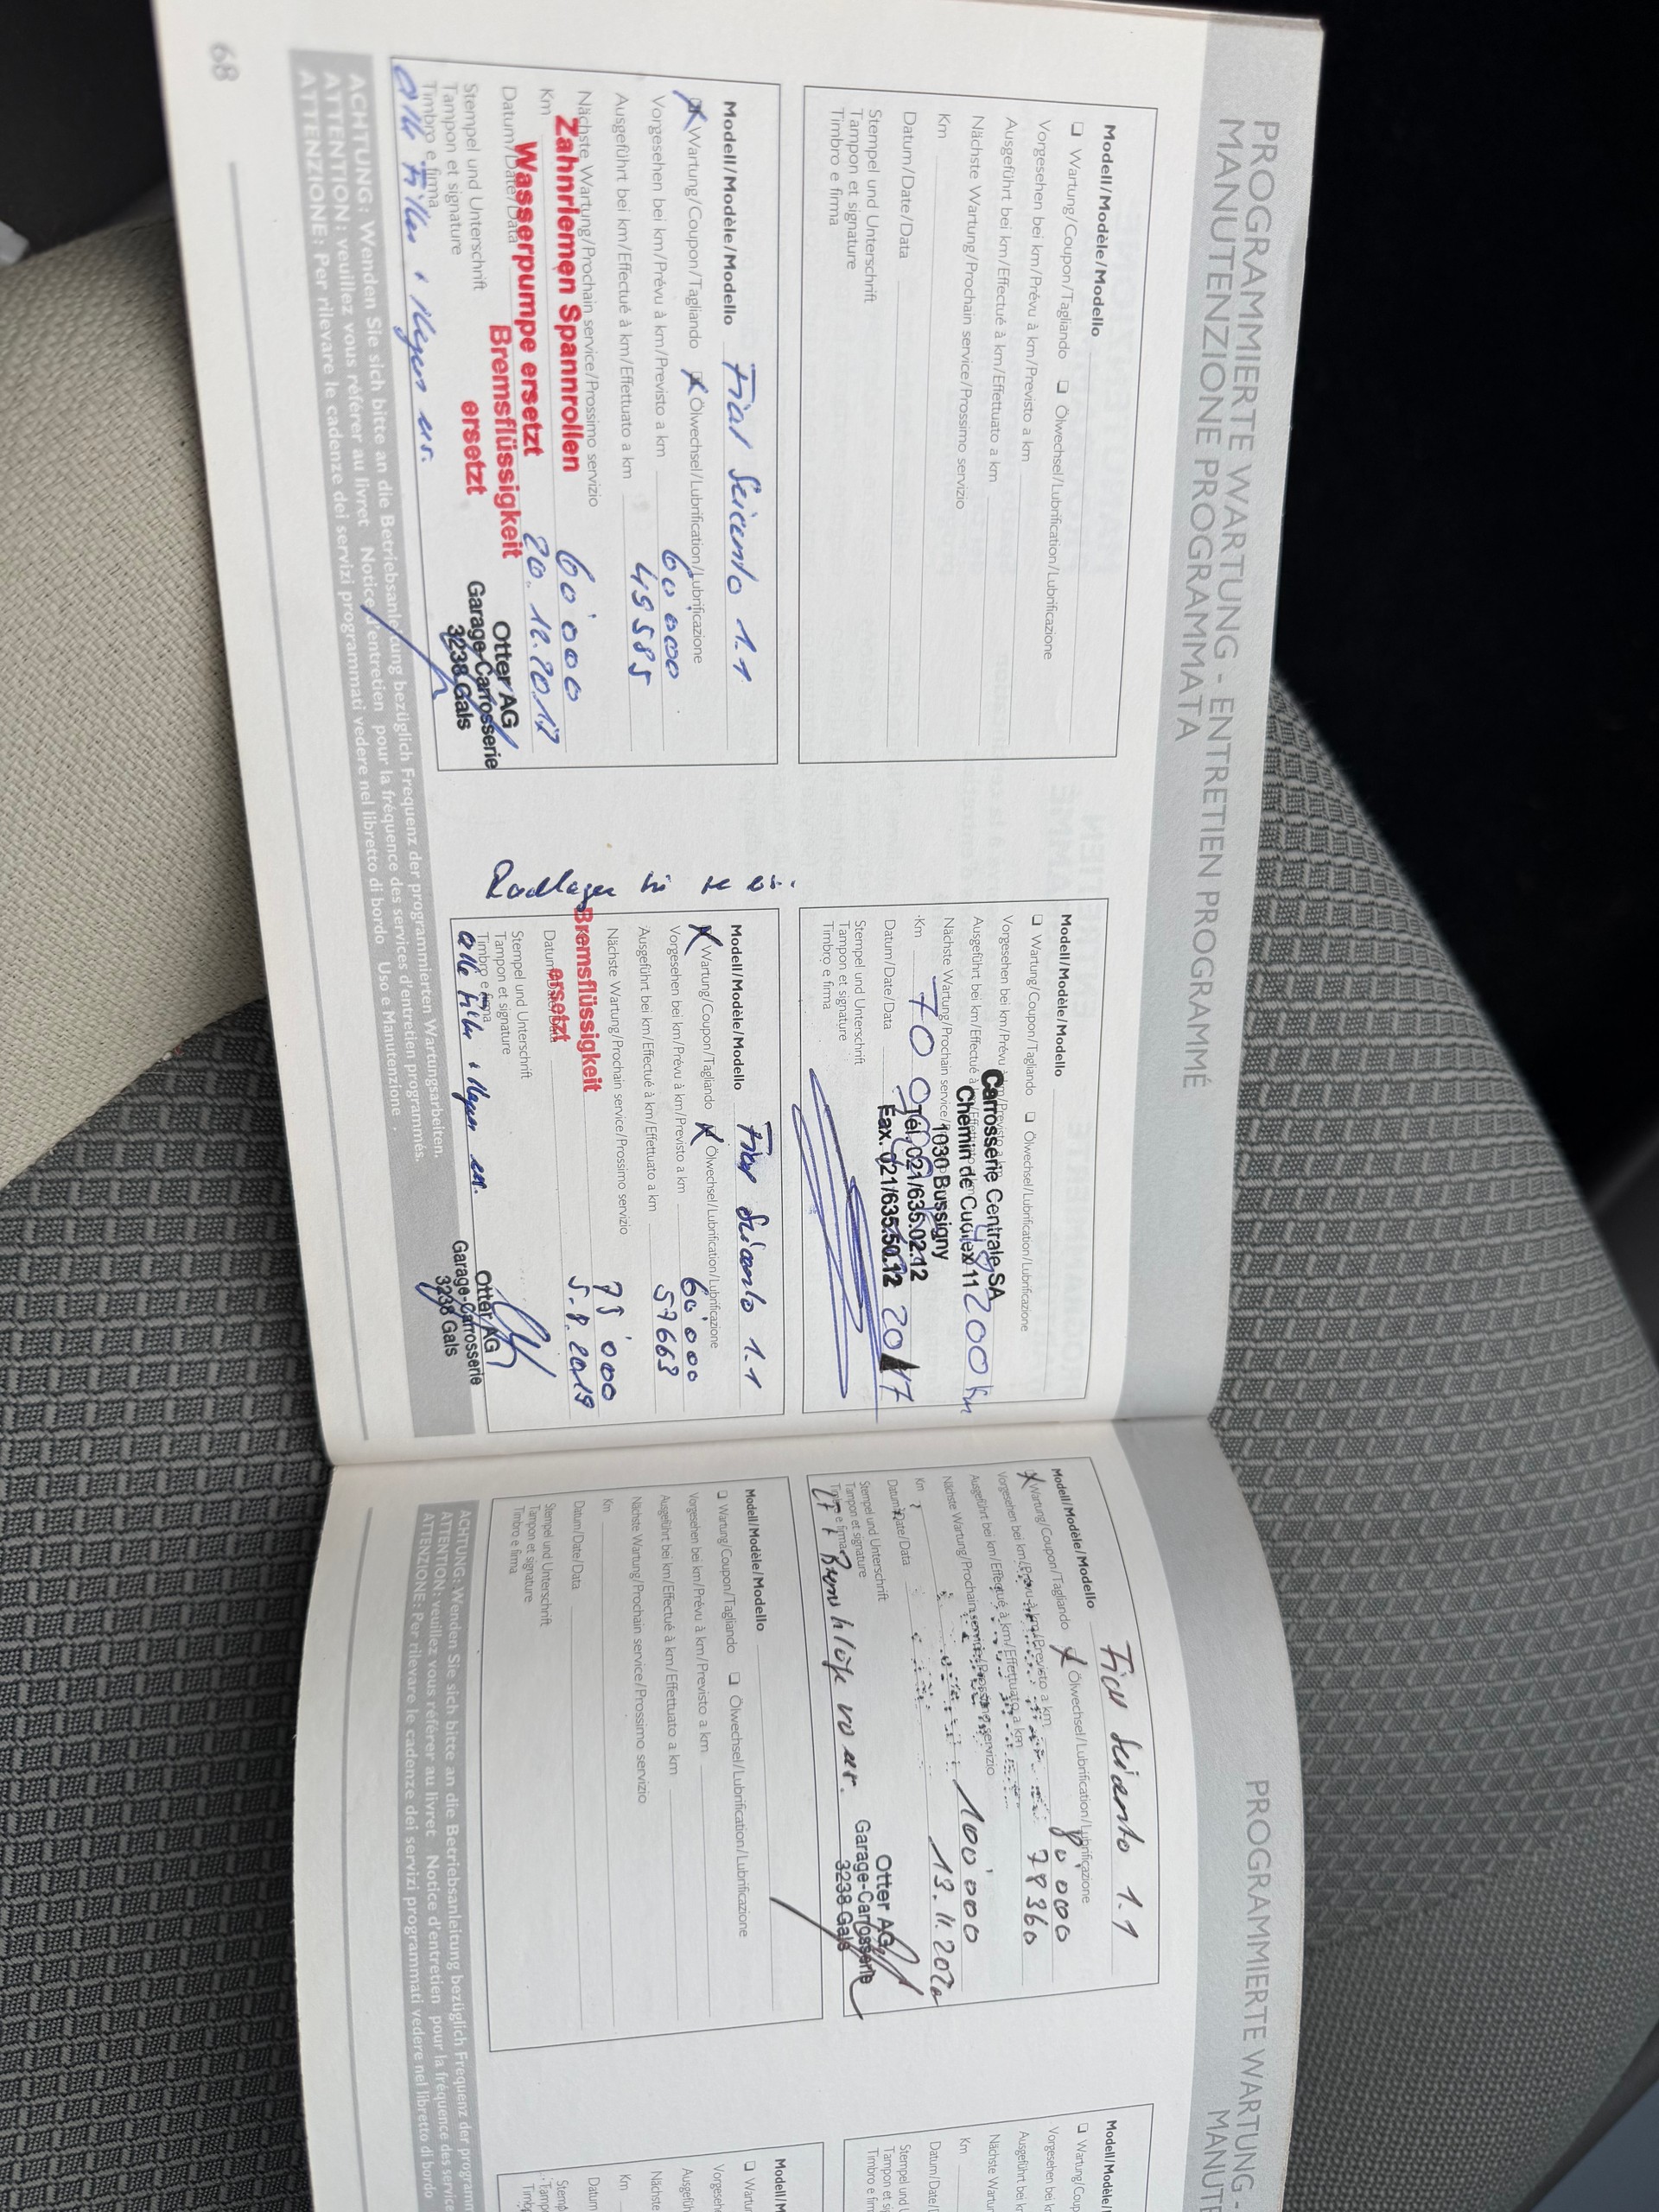 PROGRAMMIERTE WARTUNG - ENTRETIEN PROGRAMMÉ
MANUTENZIONE PROGRAMMATA
Modell/Modèle/Modello
Wartung/Coupon/Tagliando Ölwechsel/Lubrification/Lubrificazione
Vorgesehen bei km/Prévu à km/Previsto a km
Ausgeführt bei km/Effectué à km/Effettuato a km
Nächste Wartung/Prochain service/Prossimo servizio
Km
Datum/Date/Data
Stempel und Unterschrift
Tampon et signature
Timbro e firma
Modell/Modèle/Modello
Wartung/Coupon/Tagliando Ölwechsel/Lubrification/Lubrificazione
Vorgesehen bei km/Prévu à km/Previsto a km
Ausgeführt bei km/Effectué à km/Effettuato a km
200 km
Nächste Wartung/Prochain service/
Km 70 000
Datum/Date/Data 2017
Stempel und Unterschrift
Tampon et signature
Timbro e firma
Carrosserie Centrale SA
Chemin de Cudrex 11
1030 Bussigny
Tél. 021/635.02.12
Fax. 021/635.50.12
Modell/Modèle/Modello Fiat Seicento 1.1
X Wartung/Coupon/Tagliando X Ölwechsel/Lubrification/Lubrificazione
Vorgesehen bei km/Prévu à km/Previsto a km 60'000
Ausgeführt bei km/Effectué à km/Effettuato a km 45585
Nächste Wartung/Prochain service/Prossimo servizio
Km 60'000
Datum/Date/Data 20.12.2017
Stempel und Unterschrift
Tampon et signature
Timbro e firma
Zahnriemen Spannrollen
Wasserpumpe ersetzt
Bremsflüssigkeit
ersetzt
Otter AG
Garage-Carrosserie
3238 Gals
alle Filter
Radlager
Modell/Modèle/Modello Fiat Seicento 1.1
X Wartung/Coupon/Tagliando X Ölwechsel/Lubrification/Lubrificazione
Vorgesehen bei km/Prévu à km/Previsto a km 60'000
Ausgeführt bei km/Effectué à km/Effettuato a km 57663
Nächste Wartung/Prochain service/Prossimo servizio
75'000
Datum 5.8.2019
Stempel und Unterschrift
Tampon et signature
Timbro e firma
Bremsflüssigkeit
ersetzt
Otter AG
Garage-Carrosserie
3238 Gals
alle Filter
ACHTUNG: Wenden Sie sich bitte an die Betriebsanleitung bezüglich Frequenz der programmierten Wartungsarbeiten.
ATTENTION: veuillez vous référer au livret Notice d'entretien pour la fréquence des services d'entretien programmés.
ATTENZIONE: Per rilevare le cadenze dei servizi programmati vedere nel libretto di bordo Uso e Manutenzione .
68
PROGRAMMIERTE WARTUNG -
MANUTE
Modell/Modèle/Modello Fiat Seicento 1.1
X Wartung/Coupon/Tagliando X Ölwechsel/Lubrification/Lubrificazione
Vorgesehen bei km/Prévu à km/Previsto a km 80'000
Ausgeführt bei km/Effectué à km/Effettuato a km 78360
Nächste Wartung/Prochain service/Prossimo servizio
Km 100'000
Datum/Date/Data 13.11.2020
Stempel und Unterschrift
Tampon et signature
Timbro e firma
Otter AG
Garage-Carrosserie
3238 Gals
Modell/Modèle/Modello
Wartung/Coupon/Tagliando Ölwechsel/Lubrification/Lubrificazione
Vorgesehen bei km/Prévu à km/Previsto a km
Ausgeführt bei km/Effectué à km/Effettuato a km
Nächste Wartung/Prochain service/Prossimo servizio
Km
Datum/Date/Data
Stempel und Unterschrift
Tampon et signature
Timbro e firma
Modell/Modèle
Wartung/Coup
Vorgesehen bei km
Ausgeführt bei km
Nächste Wartung
Km
Datum/Date/D
Stempel und U
Tampon et sig
Timbro e firm
Modell/M
Wart
Vorgeseh
Ausgefüh
Nächste
Km
Datum
Stemp
Tamp
Timb
ACHTUNG: Wenden Sie sich bitte an die Betriebsanleitung bezüglich Frequenz der programm
ATTENTION: veuillez vous référer au livret Notice d'entretien pour la fréquence des service
ATTENZIONE: Per rilevare le cadenze dei servizi programmati vedere nel libretto di bordo